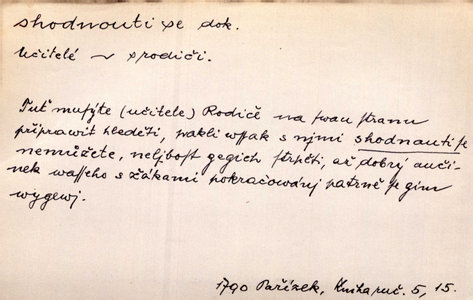 shodnouti se dok.
Učitelé ~ s rodiči.
Tuť musýte (učitele) Rodiče na swau stranu
připrawit hleděti, pakli wssak s njmi shodnauti se
nemůžete, neljbost gegich strpěti, až dobrý auči-
nek wasseho s žákami pokračowánj patrně se gim
wygewj.
1790 Pařízek, Kniha ruč. 5, 15.